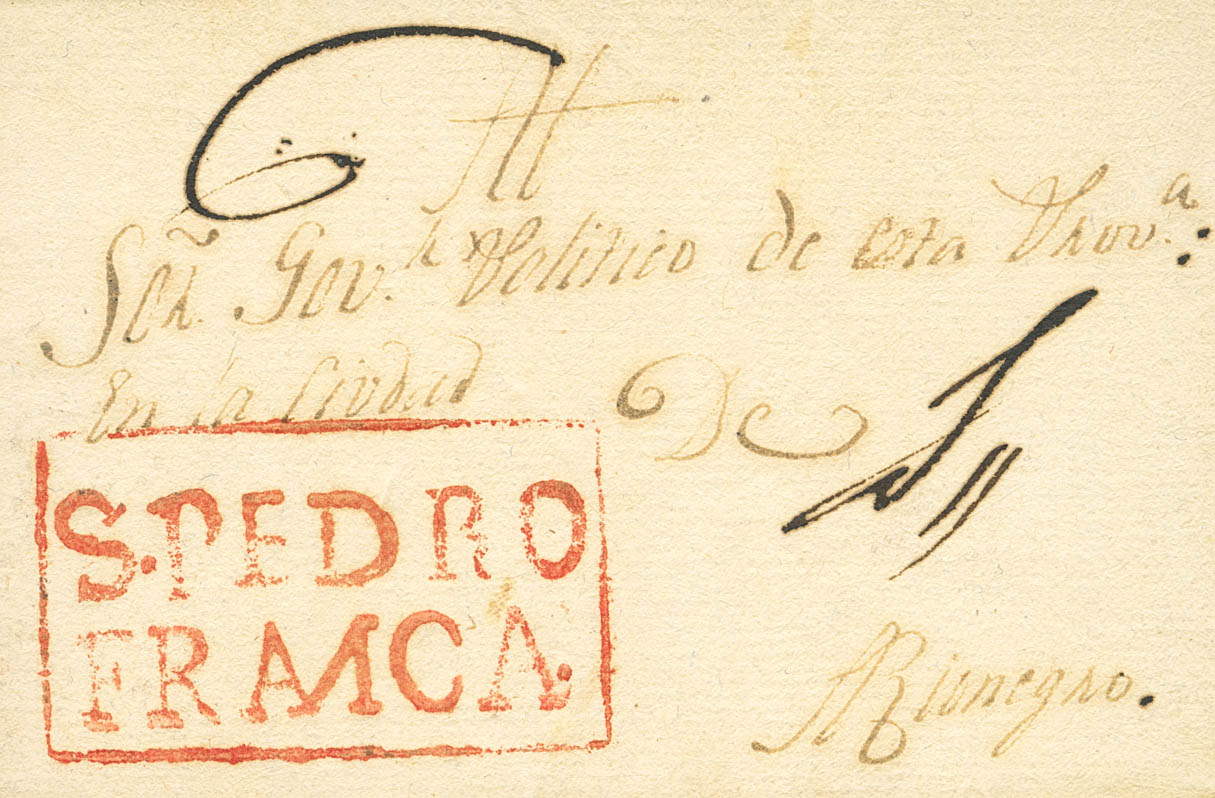 Al
Señr. Govr. Politico de esta Prov.a:
En la Ciudad De
S. PEDRO
FRANCA.
Rionegro.